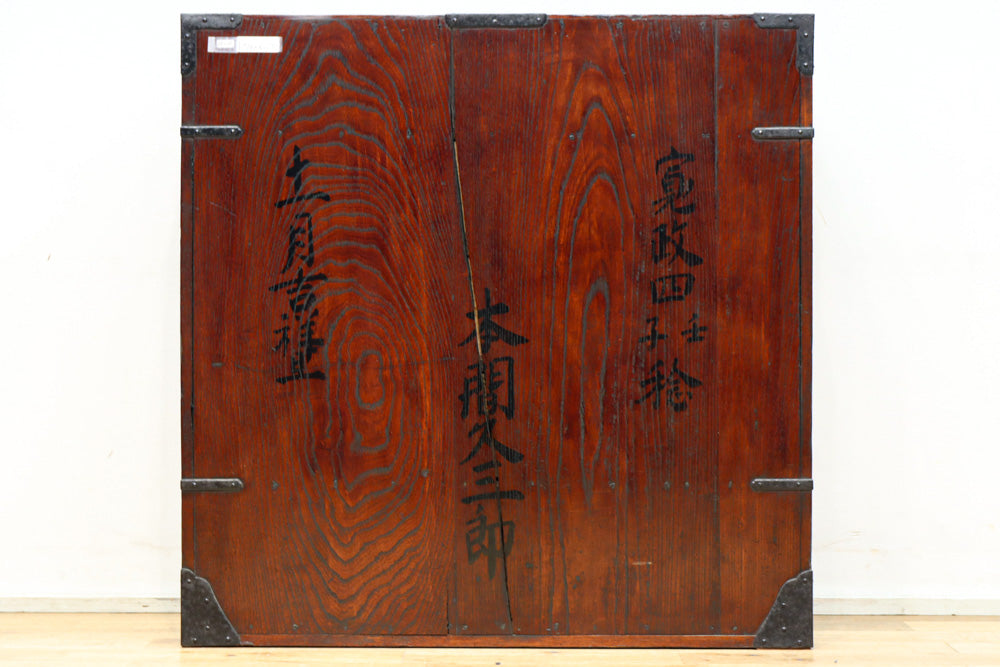 寛政四壬子稔
本間久三郎
十一月吉祥日